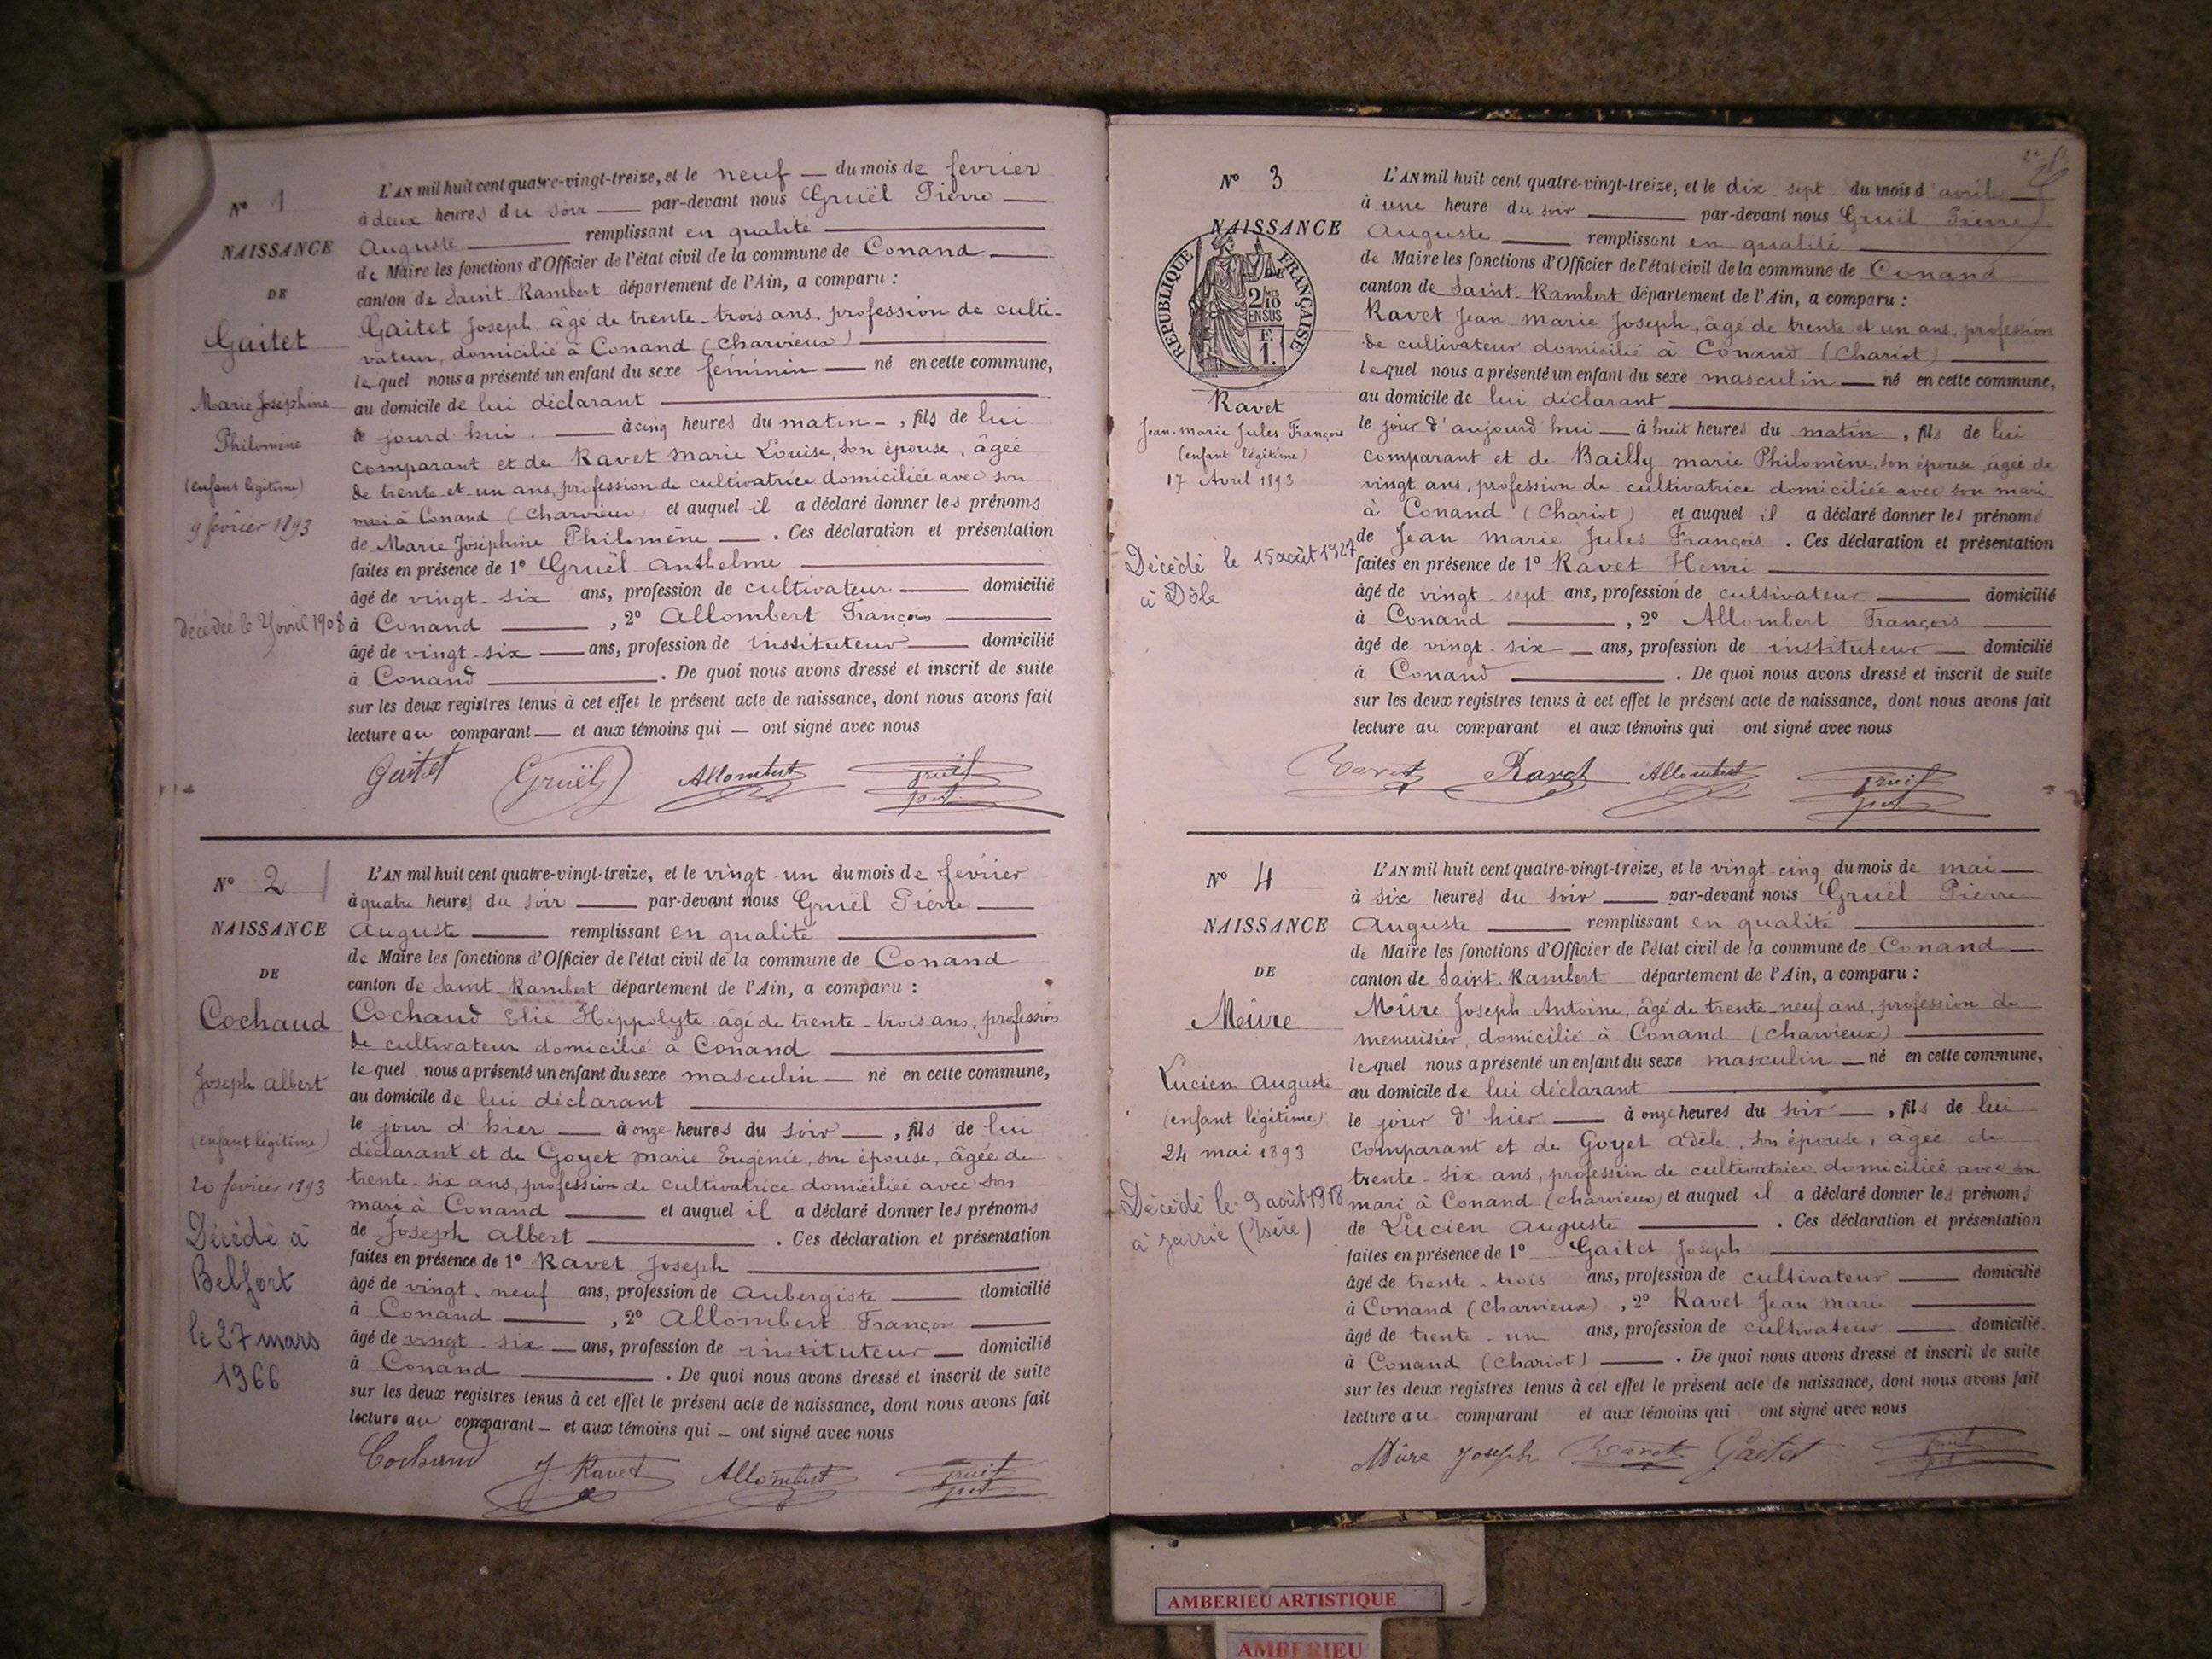 N° 1
NAISSANCE
DE
Gaitet
Marie Joséphine
Philomène
(enfant légitime)
9 février 1893
L'AN mil huit cent quatre-vingt-treize, et le neuf — du mois de février
à deux heures du soir — par-devant nous Gruël Pierre —
Auguste — remplissant en qualité —
de Maire les fonctions d'Officier de l'état civil de la commune de Conand —
canton de Saint-Rambert département de l'Ain, a comparu :
Gaitet Joseph, âgé de trente-trois ans, profession de culti-
vateur, domicilié à Conand (Charvieux) —
lequel nous a présenté un enfant du sexe féminin — né en cette commune,
au domicile de lui déclarant —
jourd'hui — à cinq heures du matin —, fils de lui
comparant et de Ravet Marie Louise, son épouse, âgée
de trente-et-un ans, profession de cultivatrice domiciliée avec son
mari à Conand (Charvieux) et auquel il a déclaré donner les prénoms
de Marie Joséphine Philomène — . Ces déclaration et présentation
faites en présence de 1° Gruël Anthelme —
âgé de vingt-six ans, profession de cultivateur — domicilié
à Conand — , 2° Allombert François —
âgé de vingt-six — ans, profession de instituteur — domicilié
à Conand — . De quoi nous avons dressé et inscrit de suite
sur les deux registres tenus à cet effet le présent acte de naissance, dont nous avons fait
lecture au comparant — et aux témoins qui — ont signé avec nous
Gaitet Gruël Allombert Gruël
avril 1908
N° 2
NAISSANCE
DE
Cochaud
Joseph Albert
(enfant légitime)
20 février 1893
Décédé à
Belfort
le 27 mars
1966
L'AN mil huit cent quatre-vingt-treize, et le vingt-un du mois de février
à quatre heures du soir — par-devant nous Gruël Pierre —
Auguste — remplissant en qualité —
de Maire les fonctions d'Officier de l'état civil de la commune de Conand
canton de Saint-Rambert département de l'Ain, a comparu :
Cochaud Elie Hippolyte âgé de trente-trois ans, profession
de cultivateur domicilié à Conand —
lequel nous a présenté un enfant du sexe masculin — né en cette commune,
au domicile de lui déclarant —
le jour d'hier — à onze heures du soir —, fils de lui
déclarant et de Goyet Marie Eugénie, son épouse, âgée de
trente-six ans, profession de cultivatrice domiciliée avec son
mari à Conand — et auquel il a déclaré donner les prénoms
de Joseph Albert — . Ces déclaration et présentation
faites en présence de 1° Ravet Joseph —
âgé de vingt-neuf ans, profession de Aubergiste — domicilié
à Conand — , 2° Allombert François —
âgé de vingt-six — ans, profession de instituteur — domicilié
à Conand — . De quoi nous avons dressé et inscrit de suite
sur les deux registres tenus à cet effet le présent acte de naissance, dont nous avons fait
lecture au comparant — et aux témoins qui — ont signé avec nous
Cochaud J. Ravet Allombert Gruël
N° 3
NAISSANCE
DE
RÉPUBLIQUE FRANÇAISE
2/10 EN SUS
1 F.
Ravet
Jean-Marie Jules François
(enfant légitime)
17 Avril 1893
Décédé le 15 août 1927
à Dôle
L'AN mil huit cent quatre-vingt-treize, et le dix-sept du mois d'avril —
à une heure du soir — par-devant nous Gruël Pierre
Auguste — remplissant en qualité —
de Maire les fonctions d'Officier de l'état civil de la commune de Conand
canton de Saint-Rambert département de l'Ain, a comparu :
Ravet Jean Marie Joseph, âgé de trente et un ans, profession
de cultivateur domicilié à Conand (Chariot) —
lequel nous a présenté un enfant du sexe masculin — né en cette commune,
au domicile de lui déclarant —
le jour d'aujourd'hui — à huit heures du matin, fils de lui
comparant et de Bailly Marie Philomène, son épouse âgée de
vingt ans, profession de cultivatrice domiciliée avec son mari
à Conand (Chariot) et auquel il a déclaré donner les prénoms
de Jean Marie Jules François . Ces déclaration et présentation
faites en présence de 1° Ravet Henri —
âgé de vingt-sept ans, profession de cultivateur — domicilié
à Conand — , 2° Allombert François —
âgé de vingt-six — ans, profession de instituteur — domicilié
à Conand — . De quoi nous avons dressé et inscrit de suite
sur les deux registres tenus à cet effet le présent acte de naissance, dont nous avons fait
lecture au comparant et aux témoins qui ont signé avec nous
Ravet Ravet Allombert Gruël
N° 4
NAISSANCE
DE
Mûre
Lucien Auguste
(enfant légitime)
24 mai 1893
Décédé le 9 août 1918
à Jarrie (Isère)
L'AN mil huit cent quatre-vingt-treize, et le vingt-cinq du mois de mai —
à six heures du soir — par-devant nous Gruël Pierre
Auguste — remplissant en qualité —
de Maire les fonctions d'Officier de l'état civil de la commune de Conand —
canton de Saint-Rambert département de l'Ain, a comparu :
Mûre Joseph Antoine, âgé de trente-neuf ans, profession de
menuisier, domicilié à Conand (Charvieux) —
lequel nous a présenté un enfant du sexe masculin — né en cette commune,
au domicile de lui déclarant —
le jour d'hier — à onze heures du soir —, fils de lui
comparant et de Goyet Adèle, son épouse, âgée de
trente-six ans, profession de cultivatrice, domiciliée avec son
mari à Conand (Charvieux) et auquel il a déclaré donner les prénoms
de Lucien Auguste — . Ces déclaration et présentation
faites en présence de 1° Gaitet Joseph —
âgé de trente-trois ans, profession de cultivateur — domicilié
à Conand (Charvieux) , 2° Ravet Jean Marie —
âgé de trente-un ans, profession de cultivateur — domicilié
à Conand (Chariot) — . De quoi nous avons dressé et inscrit de suite
sur les deux registres tenus à cet effet le présent acte de naissance, dont nous avons fait
lecture au comparant et aux témoins qui ont signé avec nous
Mûre Joseph Ravet Gaitet Gruël
AMBERIEU ARTISTIQUE
AMBERIEU